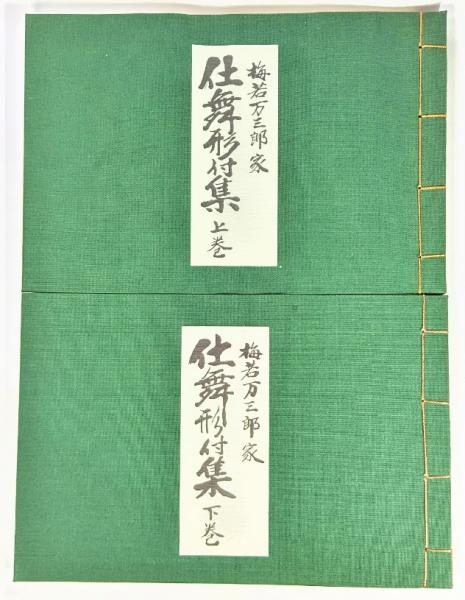 梅若万三郎家
仕舞形付集 上巻
梅若万三郎家
仕舞形付集 下巻